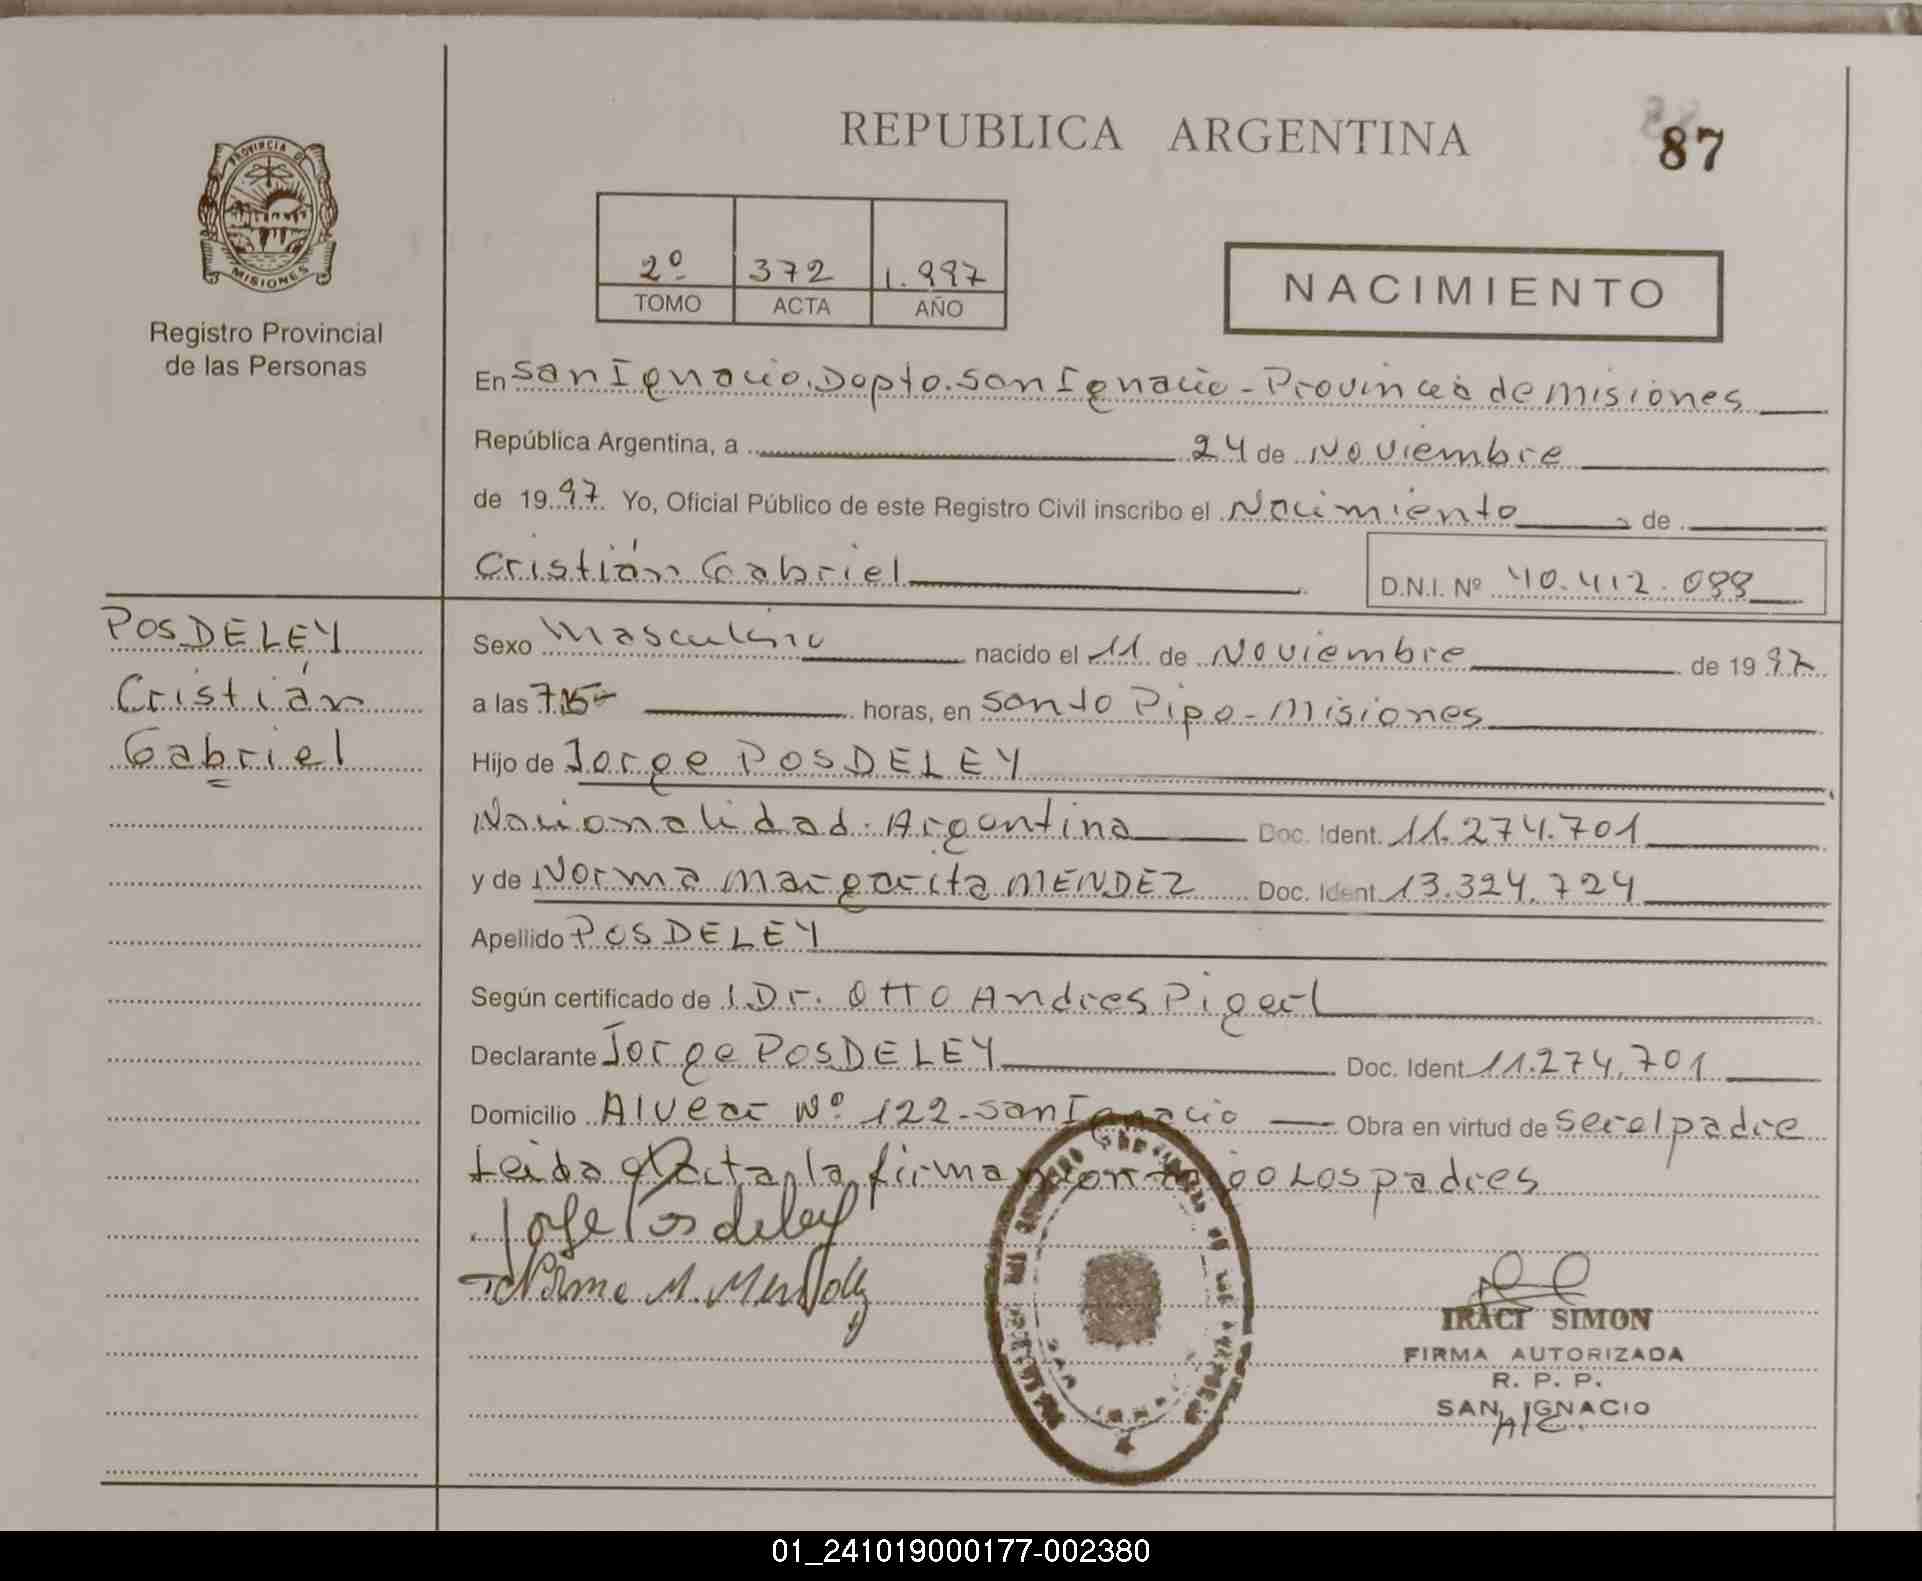 REPUBLICA ARGENTINA
87
PROVINCIA DE
MISIONES
Registro Provincial
de las Personas
2º 372 1.997
TOMO ACTA AÑO
NACIMIENTO
En San Ignacio. Dopto. San Ignacio - Provincia de misiones
República Argentina, a 24 de Noviembre
de 19 97 Yo, Oficial Público de este Registro Civil inscribo el Nacimiento de
Cristián Gabriel
D.N.I. Nº 40.412.088
POSDELEY
Cristián
Gabriel
Sexo Masculino nacido el 11 de Noviembre de 19 97
a las 7.15 horas, en Santo Pipo - Misiones
Hijo de Jorge POSDELEY
Nacionalidad. Argentina Doc. Ident. 11.274.701
y de Norma Margarita MENDEZ Doc. Ident 13.324.724
Apellido POSDELEY
Según certificado de l Dr. Otto Andres Pigerl
Declarante Jorge POSDELEY Doc. Ident 11.274.701
Domicilio Alvear Nº 122 - San Ignacio Obra en virtud de ser el padre
Leida el Acta, la firman los padres
Jorge Posdeley
Norma M. Mendez
IRACI SIMON
FIRMA AUTORIZADA
R. P. P.
SAN IGNACIO
01_241019000177-002380